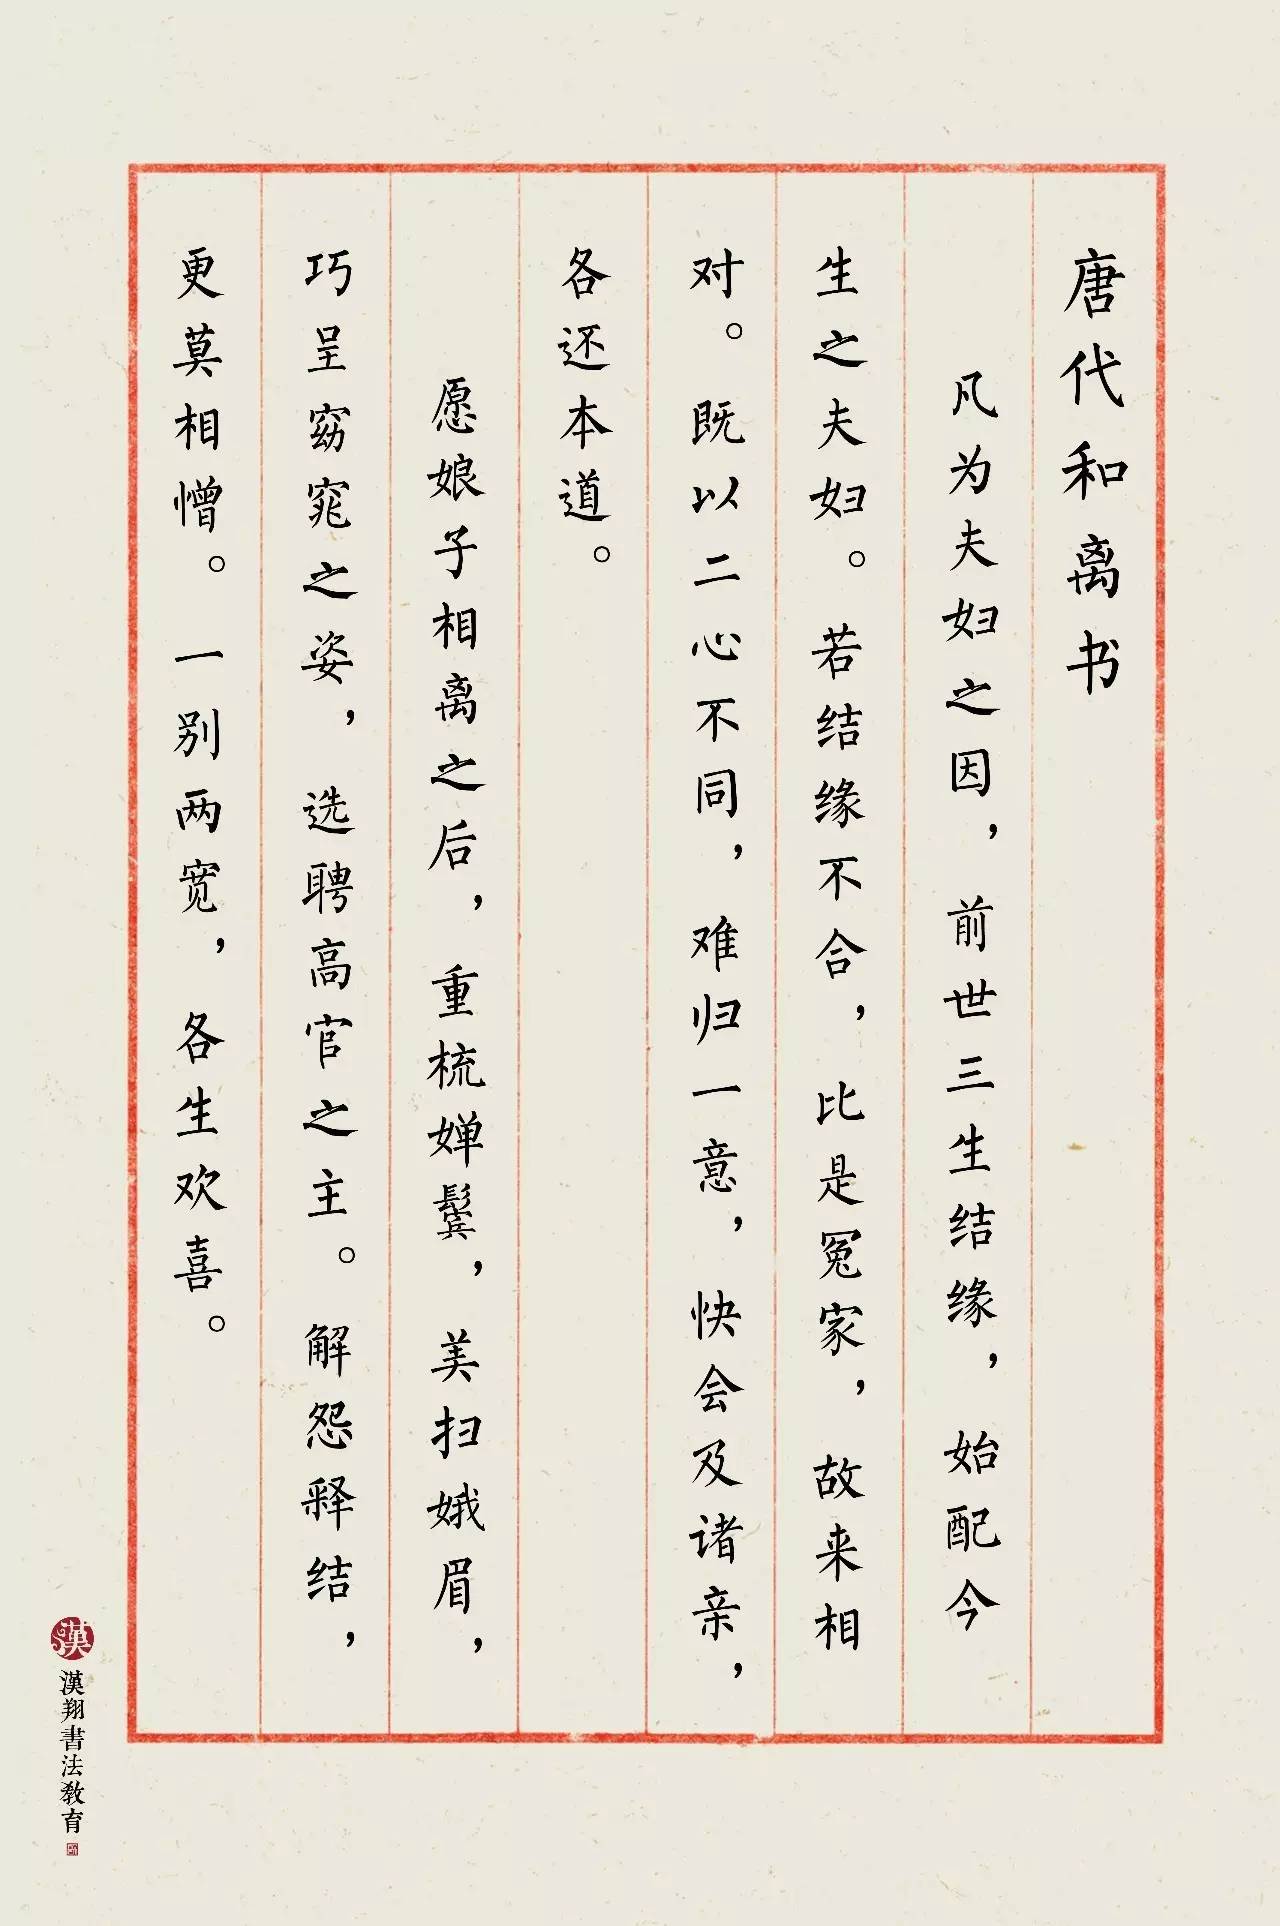 唐代和离书
凡为夫妇之因，前世三生结缘，始配今
生之夫妇。若结缘不合，比是冤家，故来相
对。既以二心不同，难归一意，快会及诸亲，
各还本道。
愿娘子相离之后，重梳婵鬓，美扫娥眉，
巧呈窈窕之姿，选聘高官之主。解怨释结，
更莫相憎。一别两宽，各生欢喜。
漢
漢翔書法教育